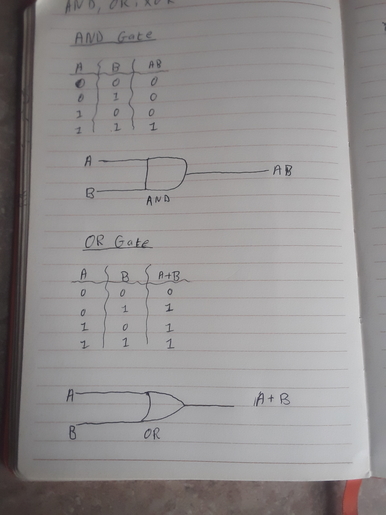 AND, OR, XOR
AND Gate
A B AB
0 0 0
0 1 0
1 0 0
1 1 1
A
AB
B
AND
OR Gate
A B A+B
0 0 0
0 1 1
1 0 1
1 1 1
A
A+B
B
OR